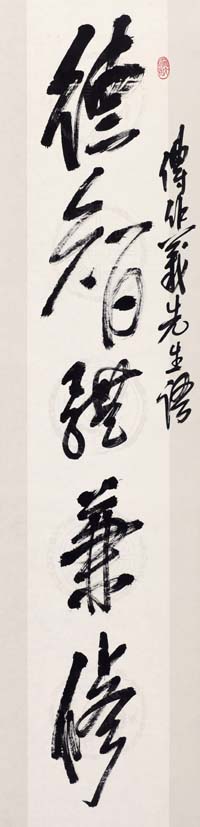 德智體兼修
傅作義先生語